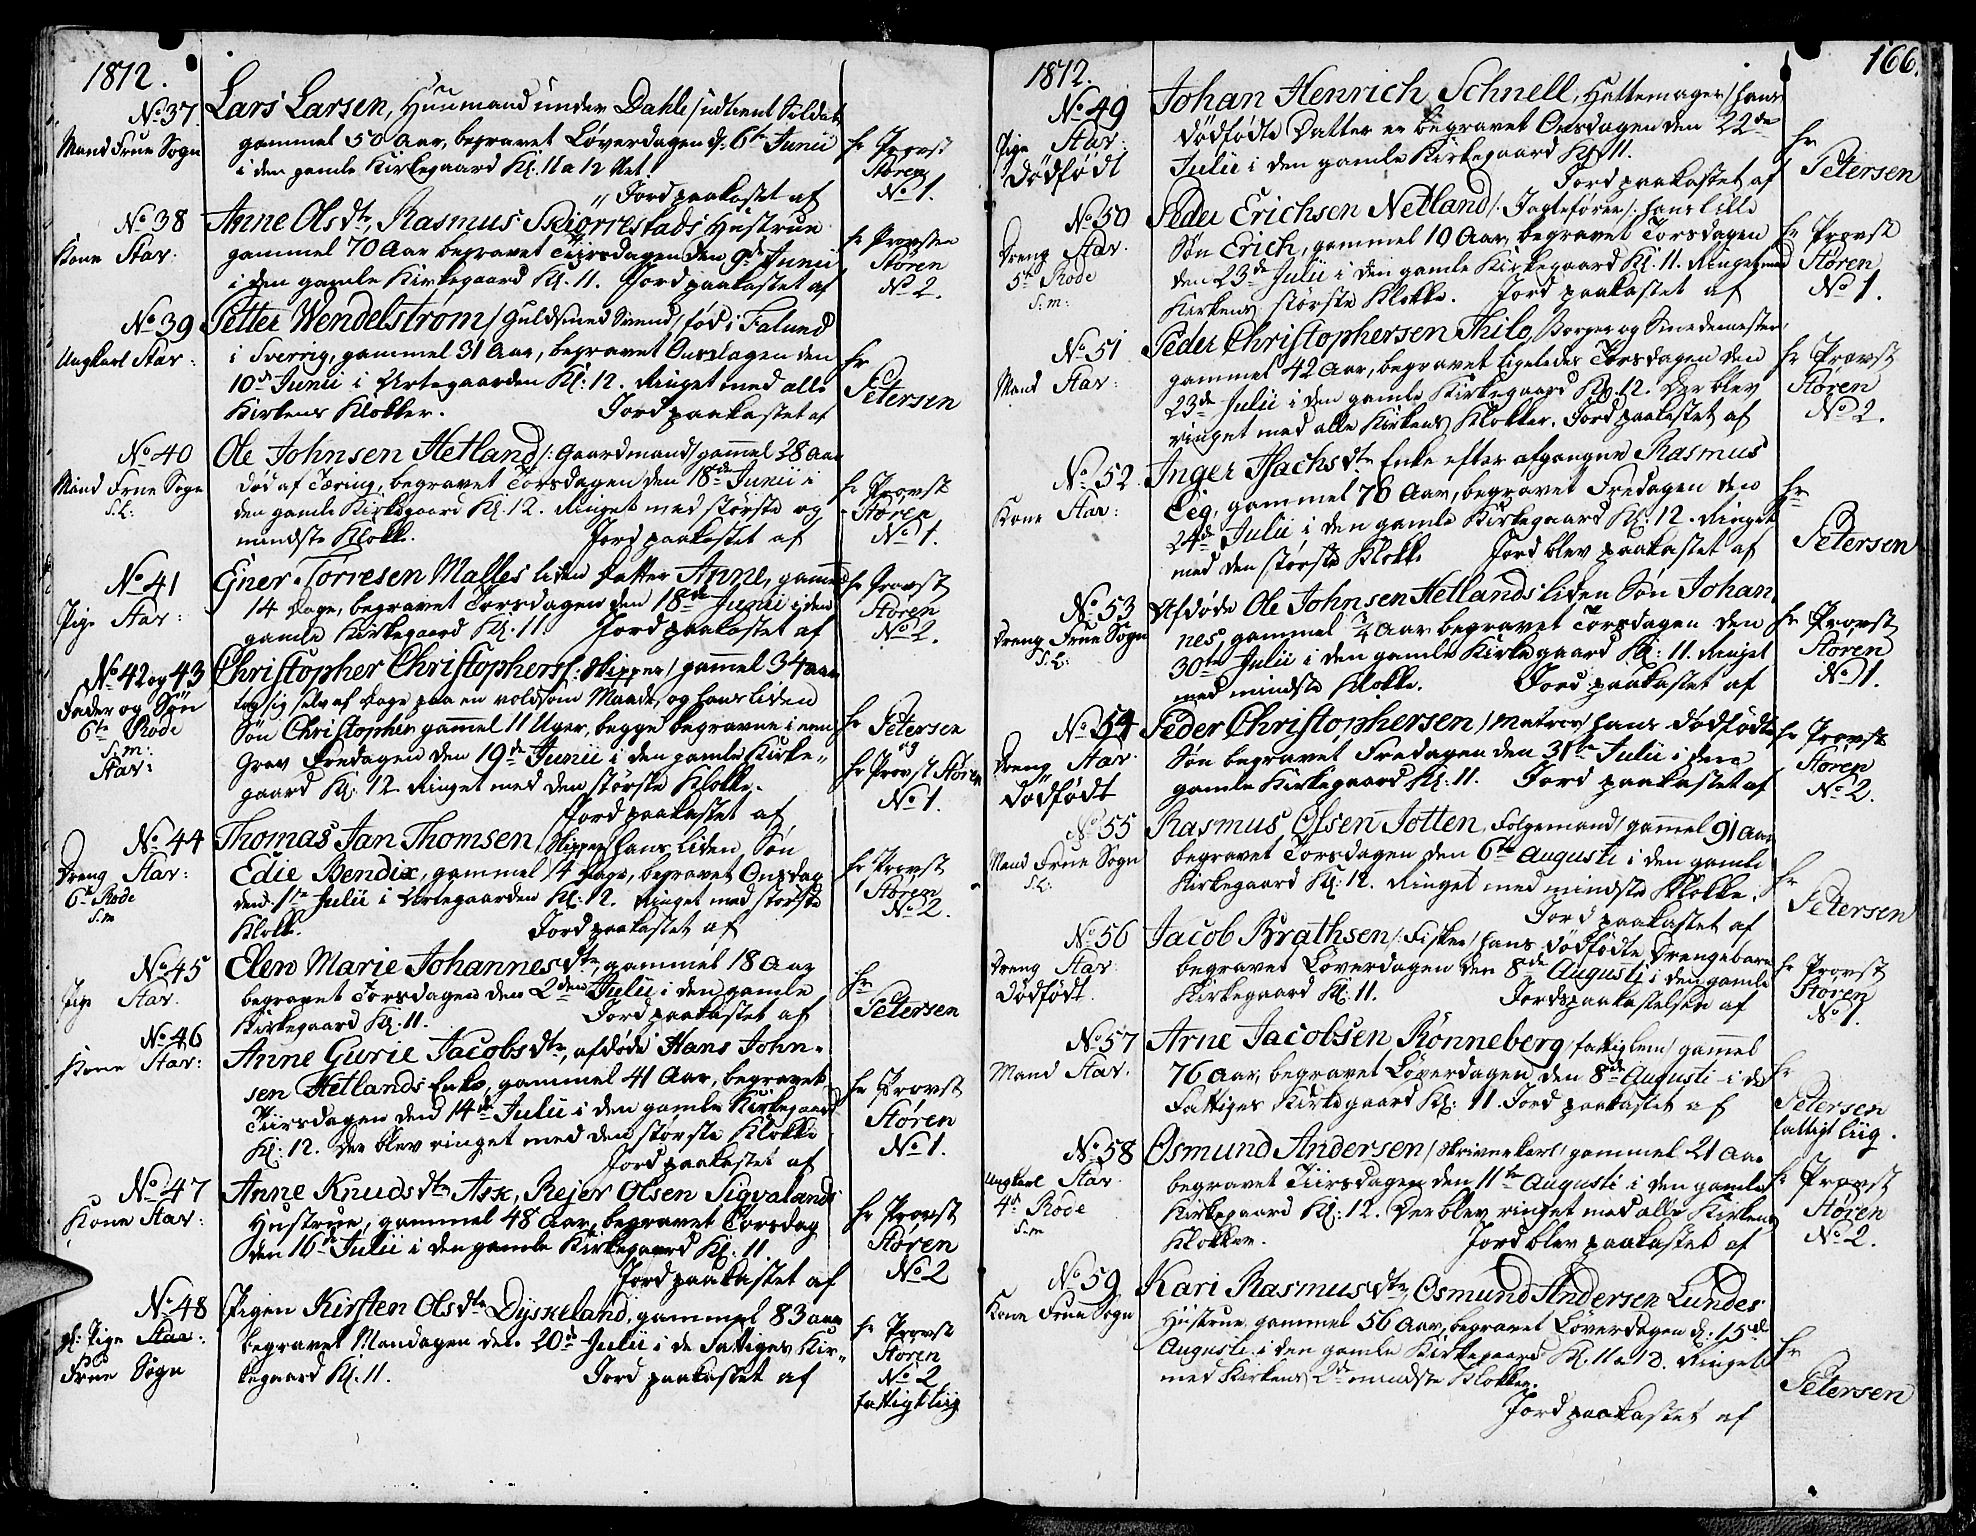 1812.
No 37
Mand Frue Sogn
Lars Larsen, Huusmand under Dahle / udtient Soldat
gammel 50 Aar, begravet Løverdagen d: 6te Junii
i den gamle Kirkegaard Kl: 11 a 12 slet.
Jord paakastet af
hr Provst
Støren
No 1.
No 38
Kone Stav:
Anne Olsdtr, Rasmus Skiorrestads Hustrue
gammel 70 Aar begravet Tiirsdagen den 9de Junii
i den gamle Kirkegaard Kl. 11. Jord paakastet af
hr Provsten
Støren
No 2.
No 39
Ungkarl Stav:
Petter Wendelstrom / Guldsmed Svend / fød i Falund
i Sverrig, gammel 31 Aar, begravet Onsdagen den
10de Junii i Urtegaarden Kl: 12. Ringet med alle
Kirkens Klokker. Jord paakastet af
hr
Petersen
No 40
Mand Frue Sogn
S. L:
Ole Johnsen Hetland /: Gaardmand / gamel 28 Aar
død af Tæring, begravet Torsdagen den 18de Junii i
den gamle Kirkegaard Kl. 12. Ringet med største og
mindste Klokke. Jord paakastet af
hr Provst
Støren
No 1.
No 41
Pige Stav:
Gner Torresen Malles liden Datter Anne, gammel
14 Dage, begravet Torsdagen den 18de Junii i den
gamle Kirkegaard Kl. 11. Jord paakastet af
hr Provst
Støren
No 2.
No 42 og 43
Fader og Søn
6te Rode
S. m:
Stav:
Christopher Christophers /: Skipper / gamel 34 aar
tog sig selv af Dage paa en voldsom Maade, og hans liden
Søn Christopher gamel 11 Uger, begge begravne i een
Grav Fredagen den 19de Junii i den gamle Kirke„
gaard Kl: 12 Ringet med den største Klokke.
Jord paakastet af
hr Petersen
og
hr Provst Støren
No 1.
No 44
Dreng Stav:
6te Rode
S. m
Thomas Jan Thomsen, / Skipper / hans liden Søn
Edie Bendix, gammel 14 Dage, begravet Onsdag
den 1ste Julii i Urtegaarden Kl: 12. Ringet med største
Klokk. Jord paakastet af
hr Provst
Støren
No 2.
No 45
Pige Stav.
Elen Marie Johannesdtr, gammel 18 Aar
begravet Torsdagen den 2den Julii i den gamle
Kirkegaard Kl. 11. Jord paakastet af
hr
Petersen
No 46
Kone Stav:
Anne Gurie Jacobsdtr, afdøde Hans John-
sen Hetlands Enke, gammel 41 Aar, begravet
Tiirsdagen den 14de Julii i den gamle Kirkegaard
Kl: 12. Der blev ringet med den største Klokke
Jord paakastet af
hr Provst
Støren
No 1.
No 47
Kone Stav:
Anne Knudsdtr Ask, Rejer Olsen Sigvalands
Hustrue, gammel 48 Aar, begravet Torsdag
den 16de Julii i den gamle Kirkegaard Kl: 11.
Jord paakastet af
hr Provst
Støren
No 2
No 48
gl: Pige Stav:
Frue Sogn
Pigen Kirsten Olsdtr Dyskeland, gammel 83 aar
begravet Mandagen den 20de Julii i de Fattiges Kir„
kegaard Kl. 11. Jord paakastet af
hr Provst
Støren
No 2
fattigt liig
1812.
166.
No 49
Pige Stav:
Dödfödt
Johan Henrich Schnell, Hattemager / hans
dödfödte Datter er begravet Onsdagen den 22de
Julii i den gamle Kirkegaard Kl 11.
Jord paakastet af
hr
Petersen
No 50
Dreng Stav.
5te Rode
S. m:
Peder Erichsen Netland /: Jagtefører /: hans lille
Søn Erich, gammel 10 Aar, begravet Torsdagen
den 23de Julii i den gamle Kirkegaard Kl. 11. Ringet med
Kirkens største Klokke. Jord paakastet af
hr Provst
Støren
No 1.
No 51
Mand Stav:
Peder Christophersen Thilo, / Borger og Smedemester /
gammel 42 Aar, begravet ligeledes Torsdagen den
23de Julii i den gamle Kirkegaard Kl. 12. Der blev
ringet med alle Kirkens Klokker. Jord paakastet af
hr Provst
Støren
No 2.
No 52
Kone Stav:
Inger Isachsdtr Enke efter afgangne Rasmus
Eeg, gammel 76 Aar, begravet Fredagen den
24de Julii i den gamle Kirkegaard Kl. 12. Ringet
med den største Klokke Jord blev paakastet af
hr
Petersen
No 53
Dreng Frue Sogn
S. L:
Afdøde Ole Johnsen Hetlands liden Søn Johan„
nes, gammel 1/4 Aar begravet Torsdagen den
30te Julii i den gamle Kirkegaard Kl: 11. Ringet
med mindste Klokke. Jord paakastet af
hr Provst
Støren
No 1.
No 54
Dreng Stav
Dödfödt
Peder Christophersen / Matros / hans dödfödte
Søn begravet Fredagen den 31te Julii i den
gamle Kirkegaard Kl: 11. Jord paakastet af
hr Provst
Støren
No 2.
No 55
Mand Frue Sogn
S. L:
Rasmus Olsen Jotten, Folgemand / gamel 91 Aar
begravet Torsdagen den 6te Augusti i den gamle
Kirkegaard Kl: 12. Ringet med mindste Klokke.
Jord paakastet af
hr
Petersen
No 56
Dreng Stav
Dödfödt.
Jacob Brathsen /: Fisker / hans dödfödte Drengebarn
begravet Løverdagen den 8de Augusti i den gamle
Kirkegaard Kl. 11. Jordspaakastelsen af
hr Provst
Støren
No 1.
No 57
Mand Stav.
Arne Jacobsen Rønneberg / fattiglem / gamel
76 Aar, begravet Løverdagen den 8de Augusti i de
Fattiges Kirkegaard Kl: 11. Jord paakastet af
hr
Petersen
fattigt liig.
No 58
Ungkarl Stav.
4de Rode
S. m
Osmund Andersen / Skriverkarl / gammel 21 Aar
begravet Tiirsdagen den 11te Augusti i den gamle
Kirkegaard Kl: 12. Der blev ringet med alle Kirkens
Klokker. Jord blev paakastet af
hr Provst
Støren
No 2.
No 59
Kone Frue Sogn
Kari Rasmusdtr, Osmund Andersen Lundes
Hustrue, gammel 56 Aar, begravet Løverdagen d: 15de
Augusti i den gamle Kirkegaard Kl. 11 a 12. Ringet
med Kirkens 2de mindste Klokker.
Jord paakastet af
hr
Petersen